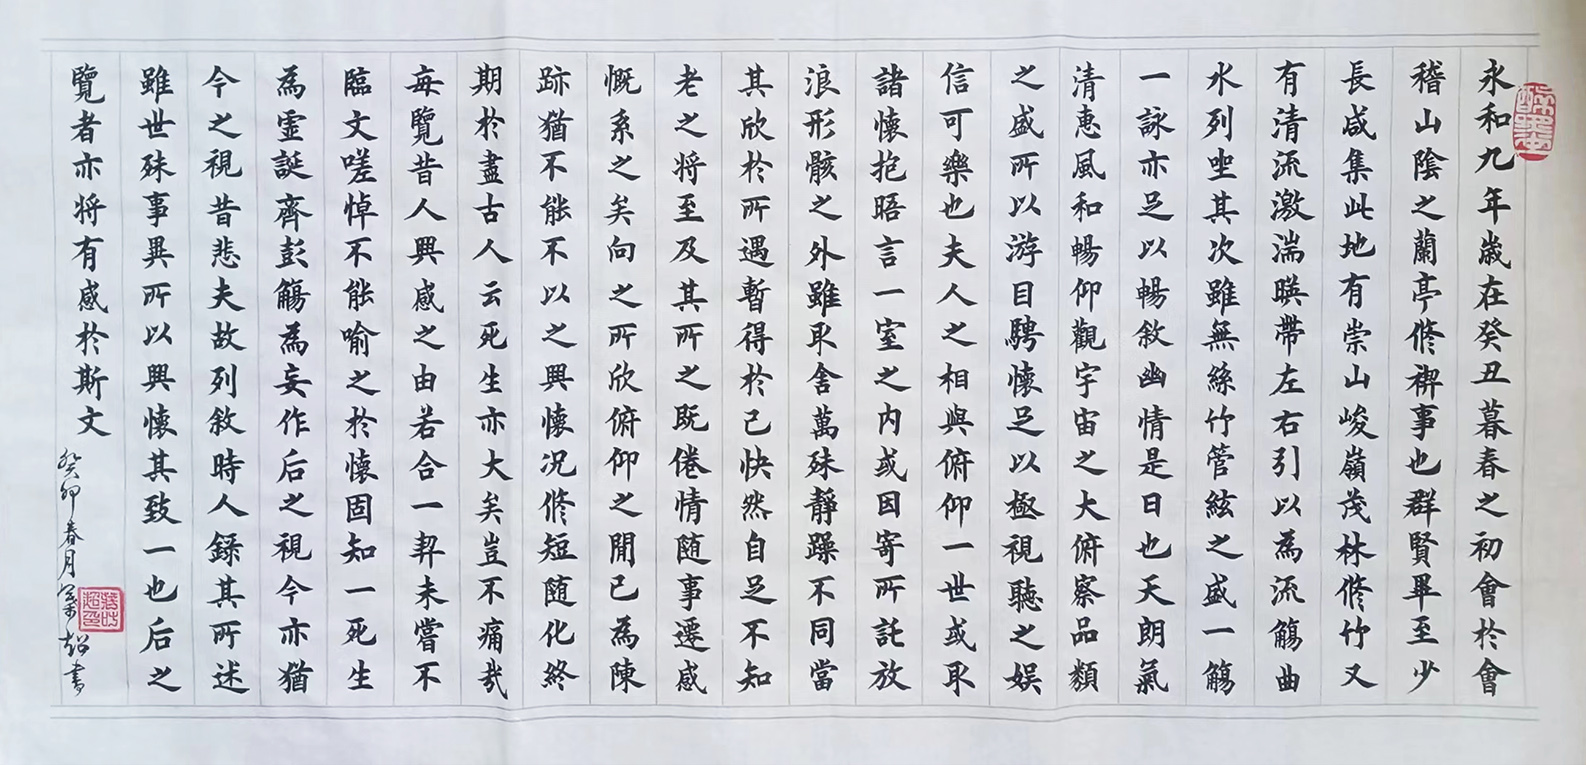 永和九年歲在癸丑暮春之初會於會
稽山陰之蘭亭脩禊事也群賢畢至少
長咸集此地有崇山峻嶺茂林脩竹又
有清流激湍暎帶左右引以為流觴曲
水列坐其次雖無絲竹管絃之盛一觴
一詠亦足以暢敘幽情是日也天朗氣
清惠風和暢仰觀宇宙之大俯察品類
之盛所以游目騁懷足以極視聽之娛
信可樂也夫人之相與俯仰一世或取
諸懷抱晤言一室之内或因寄所託放
浪形骸之外雖取舍萬殊靜躁不同當
其欣於所遇暫得於己快然自足不知
老之将至及其所之既倦情随事遷感
慨系之矣向之所欣俯仰之閒已為陳
跡猶不能不以之興懷況脩短随化終
期於盡古人云死生亦大矣豈不痛哉
每覽昔人興感之由若合一契未嘗不
臨文嗟悼不能喻之於懷固知一死生
為虛誕齊彭觴為妄作后之視今亦猶
今之視昔悲夫故列敘時人錄其所述
雖世殊事異所以興懷其致一也后之
覽者亦将有感於斯文
癸卯春月 超書